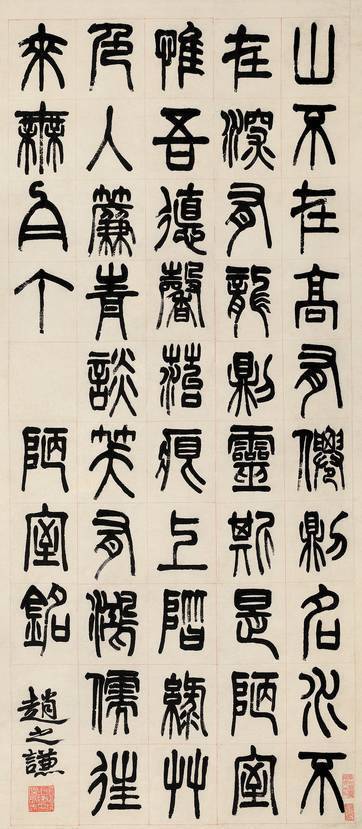 山不在高有僊則名水不
在深有龍則靈斯是陋室
惟吾德馨菭痕上階綠艸
色人簾青談笑有鴻儒往
來無白丁　陋室銘
趙之謙